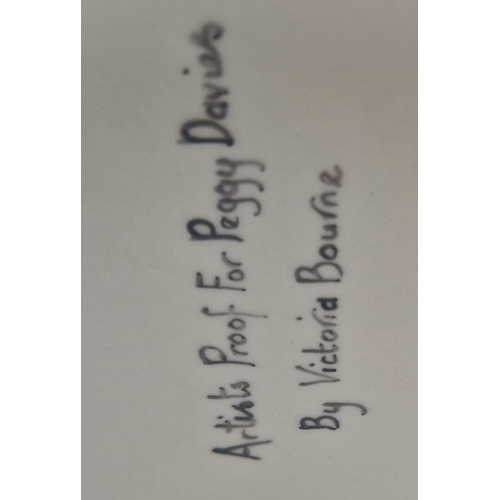 Artists Proof For Peggy Davies
By Victoria Bourne